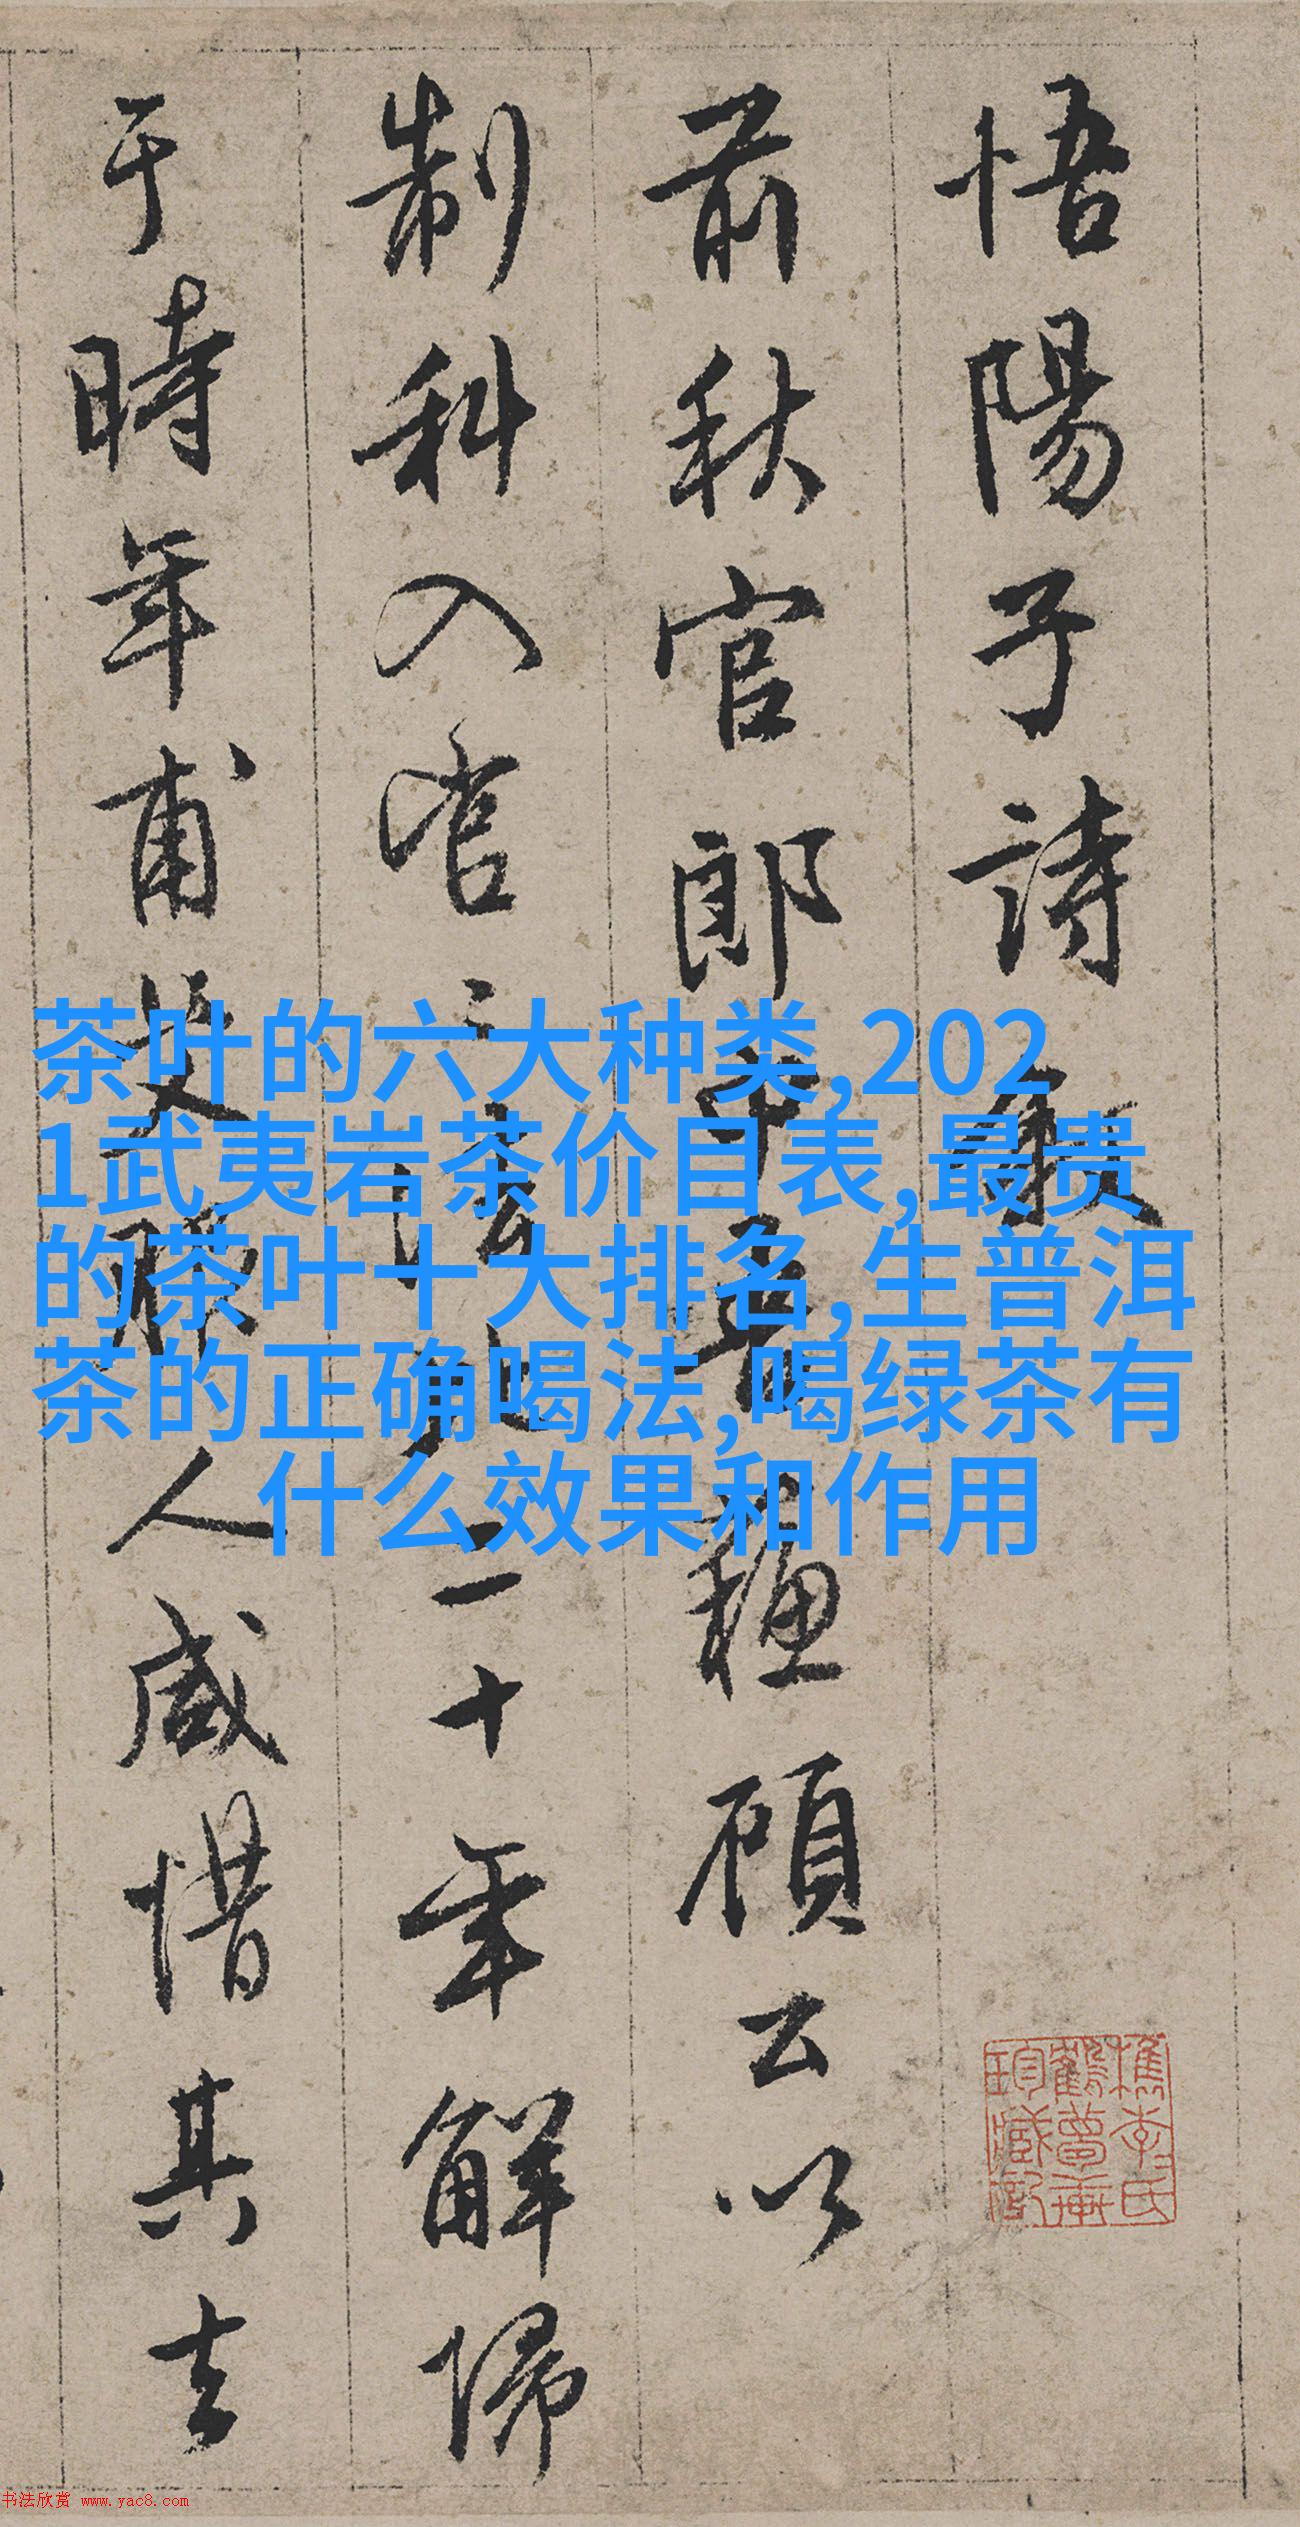 悟陽子詩
前秋官郎中吾蘓顧公以
制科入官二十年解歸
于時年甫人咸惜其去
茶叶的六大种类,202
1武夷岩茶价目表,最贵
的茶叶十大排名,生普洱
茶的正确喝法,喝绿茶有
什么效果和作用
檇李氏
鶴夢軒
珍藏記
书法欣赏 www.yac8.com